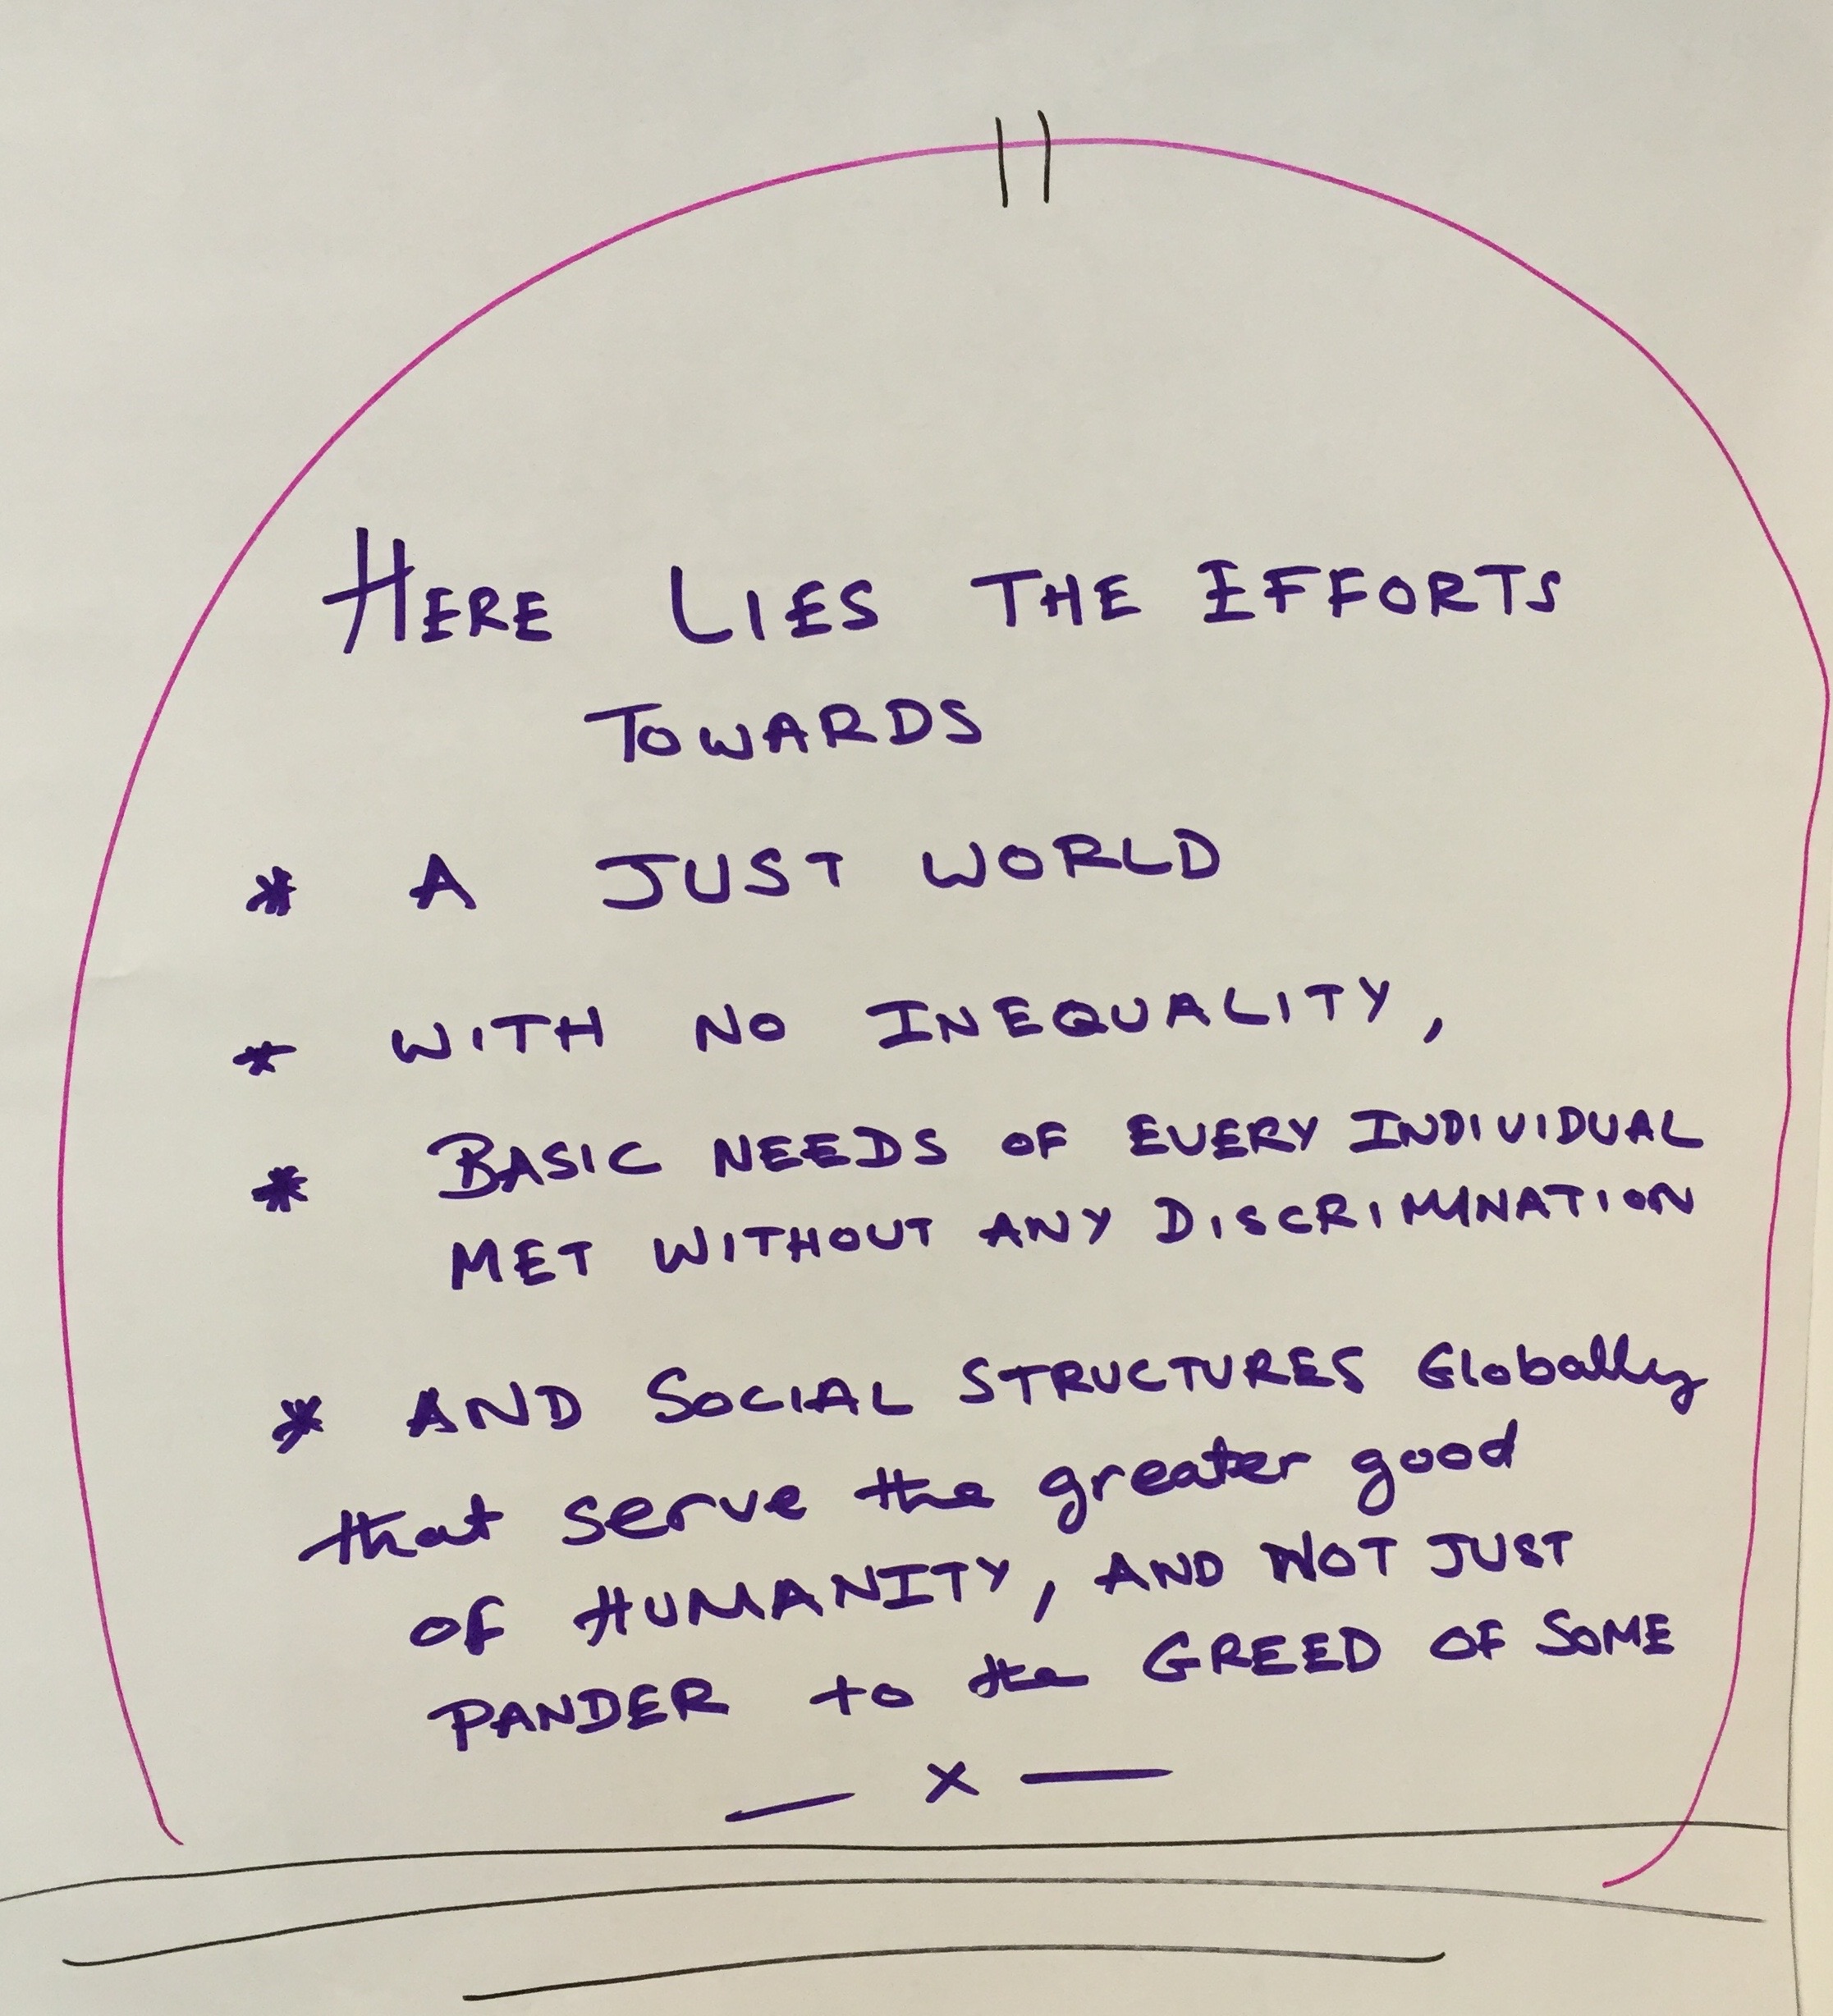 HERE LIES THE EFFORTS
TOWARDS
* A JUST WORLD
* WITH NO INEQUALITY,
* BASIC NEEDS OF EVERY INDIVIDUAL
MET WITHOUT ANY DISCRIMINATION
* AND SOCIAL STRUCTURES Globally
that serve the greater good
OF HUMANITY, AND NOT JUST
PANDER to the GREED OF SOME
— x —